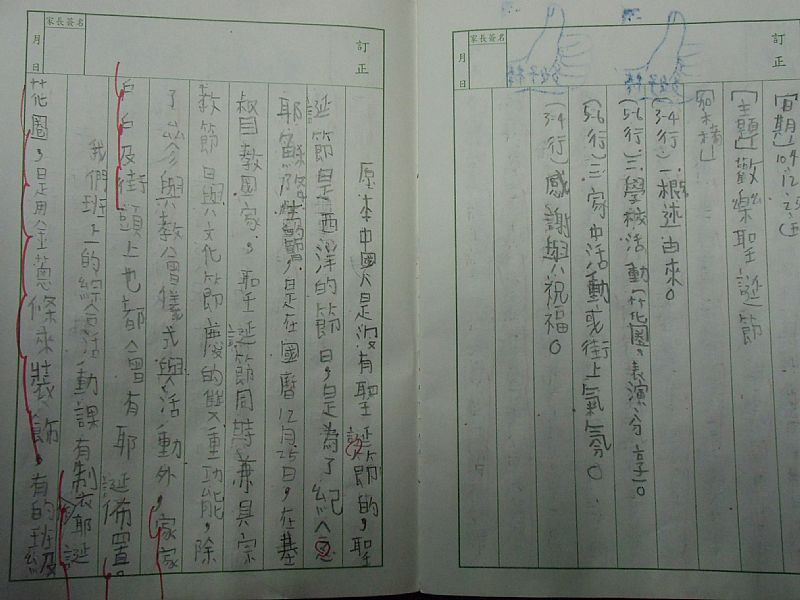 家長簽名
月
日
訂正
[日期]104.12.25(五)
[主題]歡樂聖誕節
[架構]
(3-4行)一概述由來。
(5-6行)二學校活動(花圈,表演,分享)。
(5-6行)三家中活動或街上氣氛。
(3-4行)感謝與祝福。
家長簽名
月
日
訂正
原本中國人是沒有聖誕節的,聖
誕節是西洋的節日,是為了紀念
耶穌降生的節,是在國曆12月25日,在基
督教國家,聖誕節同時兼具宗
教節日與文化節慶的雙重功能,除
了參與教會儀式與活動外,家家
戶戶及街頭上也都會有耶誕佈置。
我們班上的綜合活動課有制衣耶誕
花圈,是用金蔥條來裝飾,有的班級